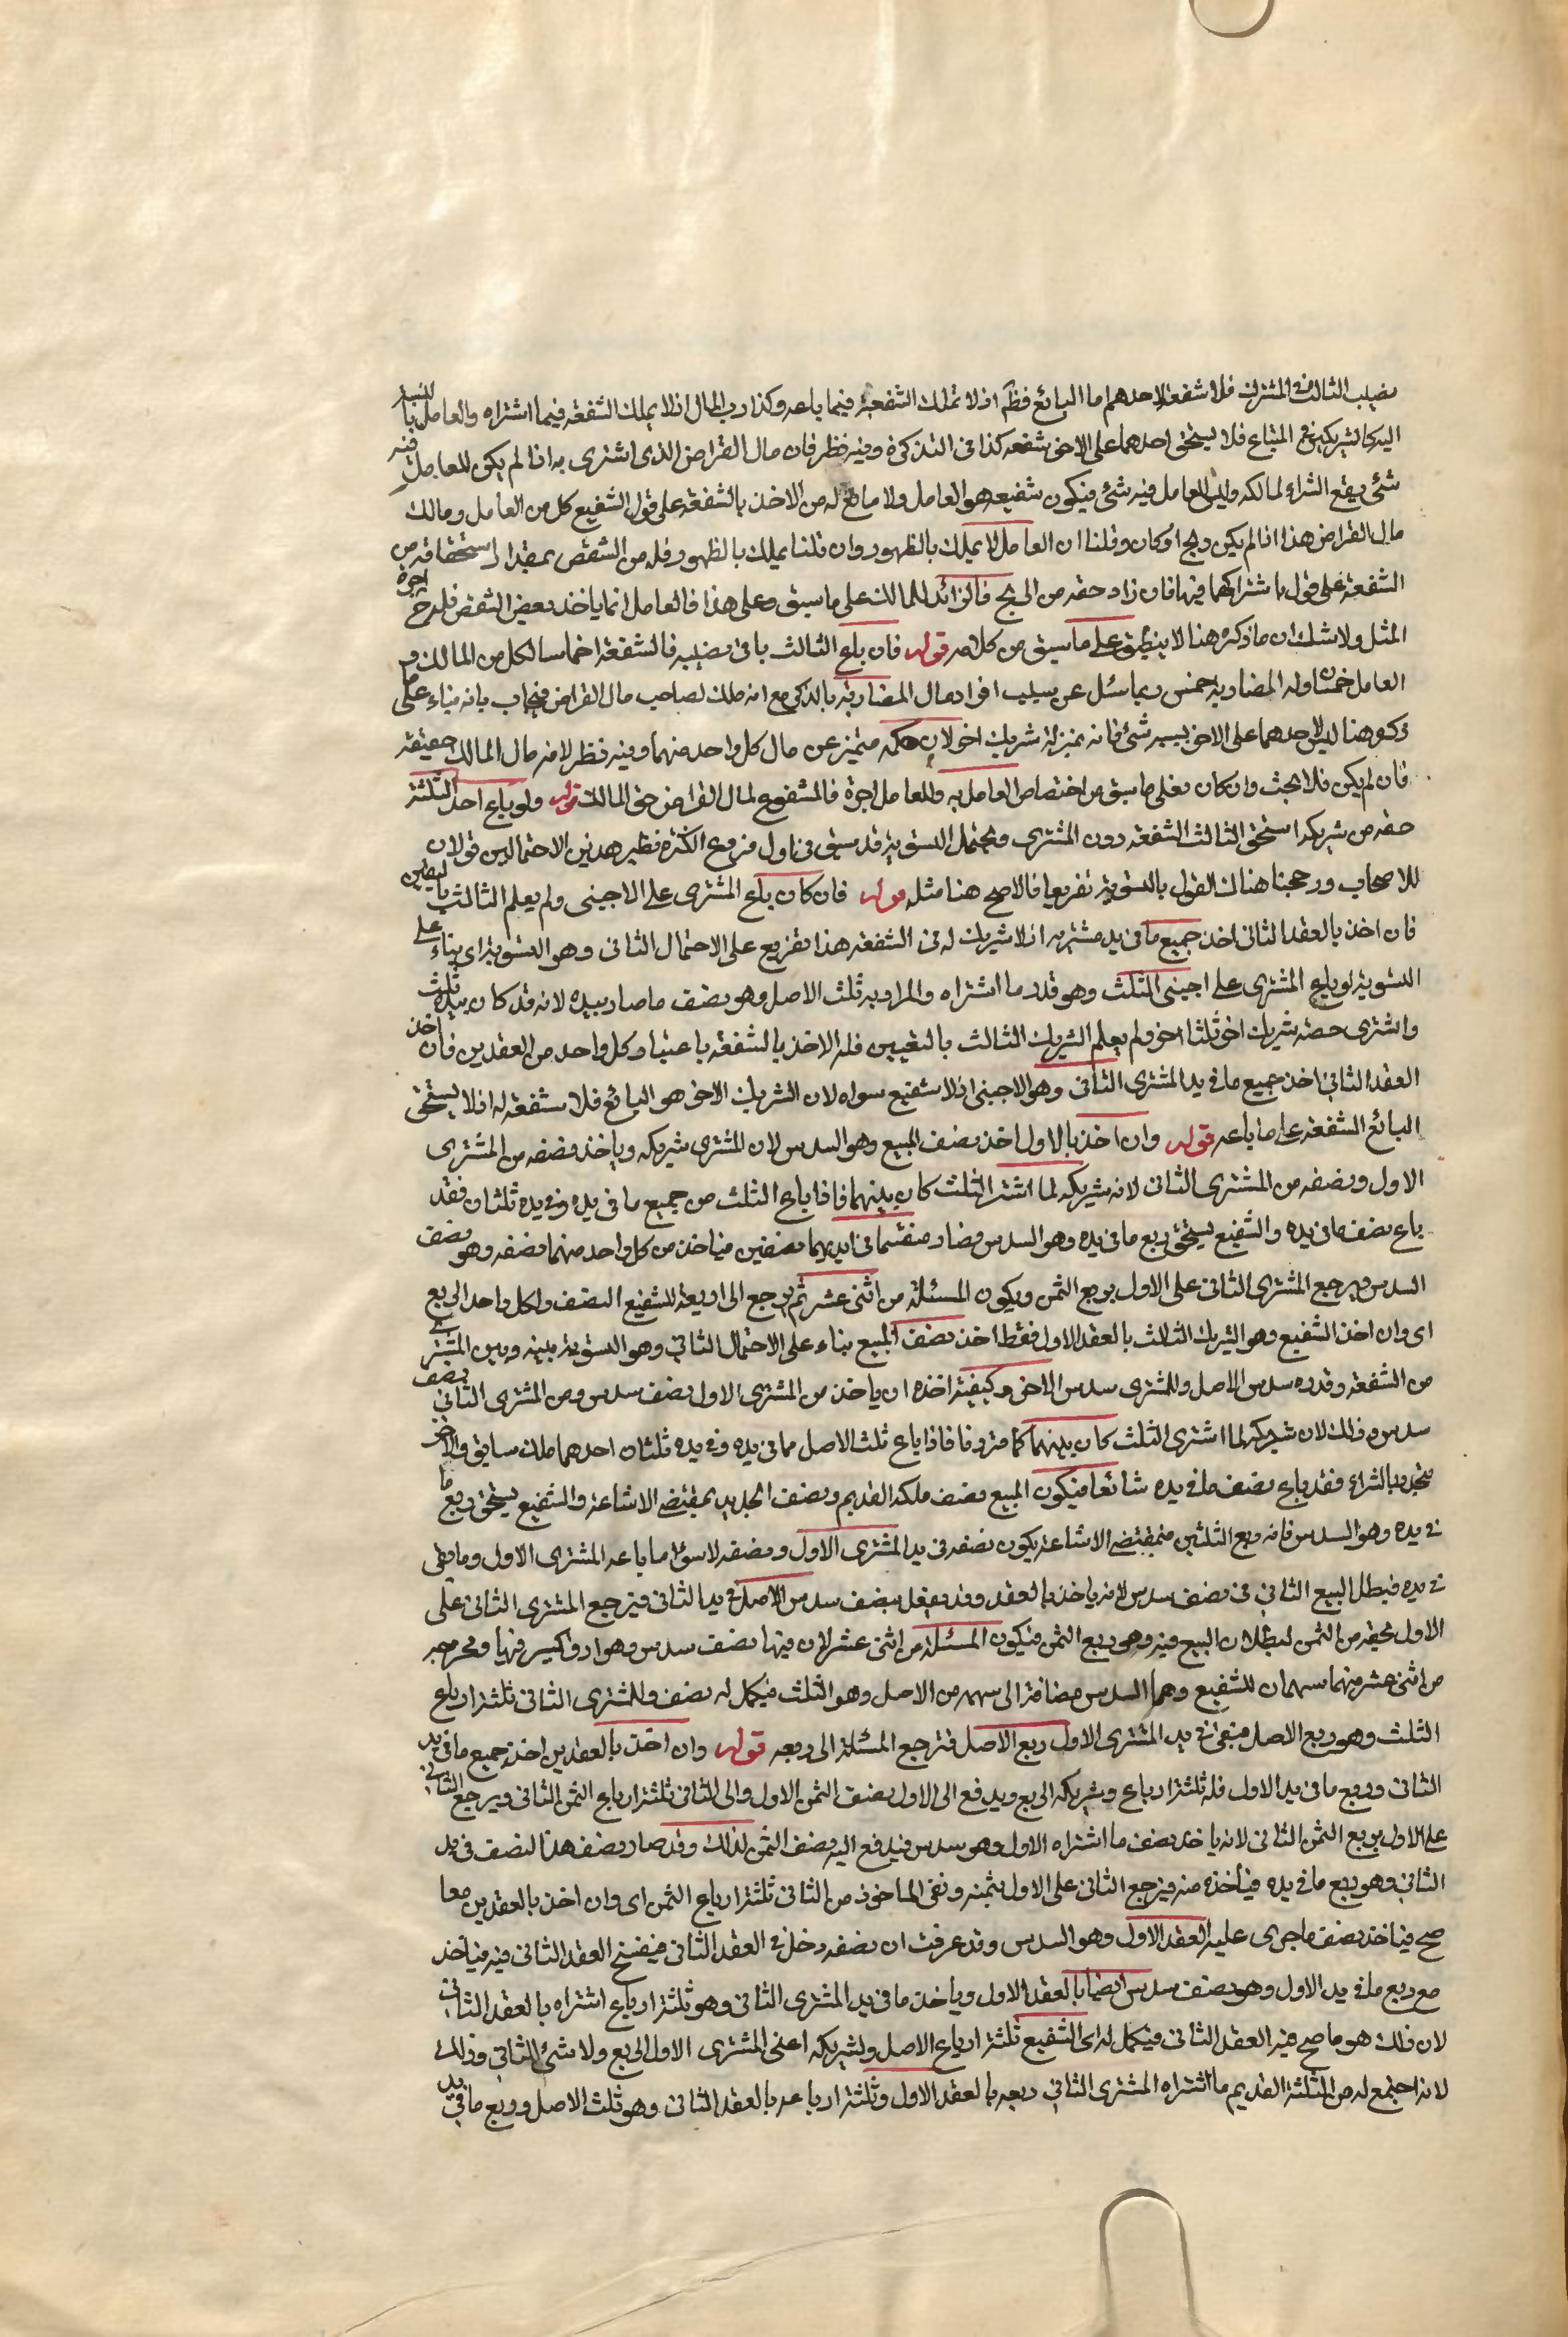 نصيب الثالث في المشترك فلا شفعة لاحدهما اما البائع فظم اذ لا تملك الشفعة فيما باعه وكذا رب المال اذ لا يملك الشفعة فيما اشتراه والعامل بالنسبة
اليه كالشريكين في المتاع فلا يستحق احدهما على الاخر شفعه كذا في التذكرة وفيه نظر فان مال القراض الذي اشترى به اذا لم يكن للعامل فيه
شئ يقع الشراء لمالكه وليس للعامل فيه شئ فيكون شفيعه هو العامل ولا مانع له من الاخذ بالشفعة على قول الشفيع كل من العامل ومالك
مال القراض هذا اذا لم يكن ربح او كان وقلنا ان العامل لا يملك بالظهور وان قلنا يملك بالظهور فله من الشقص بمقدار استحقاقه من
الشفعة على قول باشتراكهما فيها فان زاد حقه من الربح فالزائد للمالك على ما سبق وعلى هذا فالعامل انما ياخذ بعض الشقص فله ح اجرة
المثل ولا شك ان ما ذكره هنا لا ينطبق على ما سبق من كلامه قوله فان باع الثالث باقي نصيبه فالشفعة اخماسا لكل من المالك و
العامل خمسان ولمال المضاربة خمس ربما سئل عن سبب افراد مال المضاربة بالذكر مع انه ملك لصاحب مال القراض فيجاب بانه بناء على ما
ذكره هنا ليس لاحدهما على الاخر بسببه شئ فانه بمنزلة شريك اخر لان حكمه متميز عن مال كل واحد منهما وفيه نظر لانه مال المالك حقيقة
فان لم يكن فلا بحث وان كان فعلى ما سبق من اختصاص العامل به وللعامل اجرة فالمشفوع لمال القراض حق المالك قوله ولو باع احد الثلثة
حقه من شريكه استحق الثالث الشفعه دون المشتري ويحتمل التسوية قد سبق في اول فروع الكثرة نظير هذين الاحتمالين قولان
للاصحاب ورجحنا هناك القول بالتسوية تفريعا فالاصح هنا مثله قوله فان كان باع المشتري على الاجنبي ولم يعلم الثالث بالبيعين
فان اخذ بالعقد الثاني اخذ جميع ما في يد مشتريه اذ لا شريك له في الشفعه هذا تفريع على الاحتمال الثاني وهو التسوية اي بناء على
التسوية لو باع المشتري على اجنبي الثلث وهو قدر ما اشتراه والمراد به ثلث الاصل وهو نصف ما صار بيده لانه قد كان بيده ثلث
واشترى حصة شريك اخر ثلثا اخر ولم يعلم الشريك الثالث بالتعيين فله الاخذ بالشفعه باعتبار كل واحد من العقدين فان اخذ
العقد الثاني اخذ جميع ما في يد المشتري الثاني وهو الاجنبي اذ لا شفيع سواه لان الشريك الاخر هو البائع فلا شفعة له اذ لا يستحق
البائع الشفعه على ما باعه قوله وان اخذ بالاول اخذ نصف المبيع وهو السدس لان المشتري شريكه وياخذ نصفه من المشتري
الاول ونصفه من المشتري الثاني لانه شريكه لما اشترى الثلث كان بينهما فاذا باع الثلث من جميع ما في يده وفي يده ثلثان فقد
باع نصف ما في يده والشفيع يستحق ربع ما في يده وهو السدس فصار منقسما في ايديهما نصفين فياخذ من كل واحد منهما نصفه وهو نصف
السدس ويرجع المشتري الثاني على الاول بربع الثمن ويكون المسئلة من اثني عشر ثم يرجع الى اربعة للشفيع النصف ولكل واحد الربع
اي وان اخذ الشفيع وهو الشريك الثالث بالعقد الاول فقط اخذ نصف المبيع بناء على الاحتمال الثاني وهو التسوية بينه وبين المشتري
من الشفعه وقدره سدس الاصل وللمشتري سدس الاخر وكيفية اخذه ان ياخذ من المشتري الاول نصف سدس ومن المشتري الثاني نصف
سدس وذلك لان شريكه لما اشترى الثلث كان بينهما كما قررنا فاذا باع ثلث الاصل مما في يده وفي يده ثلثان احدهما ملك سابق والاخر
تجدد بالشراء فقد باع نصف ما في يده شائعا فيكون المبيع نصف ملكه القديم ونصف الجديد بمقتضى الاشاعة والشفيع يستحق ربع ما
في يده وهو السدس فانه ربع الثلثين فبمقتضى الاشاعة يكون نصفه في يد المشتري الاول ونصفه لاستواء ما باعه المشتري الاول وما بقي
في يده فيبطل البيع الثاني في نصف سدس لانه ياخذ بالعقد وقد تعلق بنصف سدس الاصل في يد الثاني فيرجع المشتري الثاني على
الاول بحقه من الثمن لبطلان البيع فيه وهو ربع الثمن فيكون المسئلة من اثني عشر لان فيها نصف سدس وهو ادق كسر فيها ومخرجه
من اثني عشر منهما سهمان للشفيع وهما السدس مضافة الى سهمه من الاصل وهو الثلث فيكمل له نصف وللمشتري الثاني ثلثة ارباع
الثلث وهو ربع الاصل فيبقى في يد المشتري الاول ربع الاصل فترجع المسئلة الى ربعه قوله وان اخذ بالعقدين اخذ جميع ما في يد
الثاني وربع ما في يد الاول فله ثلثة ارباع وشريكه الربع ويدفع الى الاول نصف الثمن الاول والى الثاني ثلثة ارباع الثمن الثاني ويرجع الثاني
على الاول بربع الثمن الثاني لانه ياخذ نصف ما اشتراه الاول وهو سدس فيدفع اليه نصف الثمن لذلك وقد صار نصف هذا النصف في يد
الثاني وهو ربع ما في يده فيأخذه منه فيرجع الثاني على الاول بثمنه وبقي الماخوذ من الثاني ثلثة ارباع الثمن اي وان اخذ بالعقدين معا
صح فياخذ نصف ما جرى عليه العقد الاول وهو السدس وقد عرفت ان نصفه دخل في العقد الثاني فيفسخ العقد الثاني فيه فياخذ
مع ربع ما في يد الاول وهو نصف سدس ايضا بالعقد الاول وياخذ ما في يد المشتري الثاني وهو ثلثة ارباع اشتراه بالعقد الثاني
لان ذلك هو ما صح فيه العقد الثاني فيكمل له اي الشفيع ثلثة ارباع الاصل ولشريكه اعني المشتري الاول الربع ولا شئ للثاني وذلك
لانه اجتمع له من الثلثة القديم ما اشتراه المشتري الثاني ربعه بالعقد الاول وثلثة ارباعه بالعقد الثاني وهو ثلث الاصل وربع ما في يد